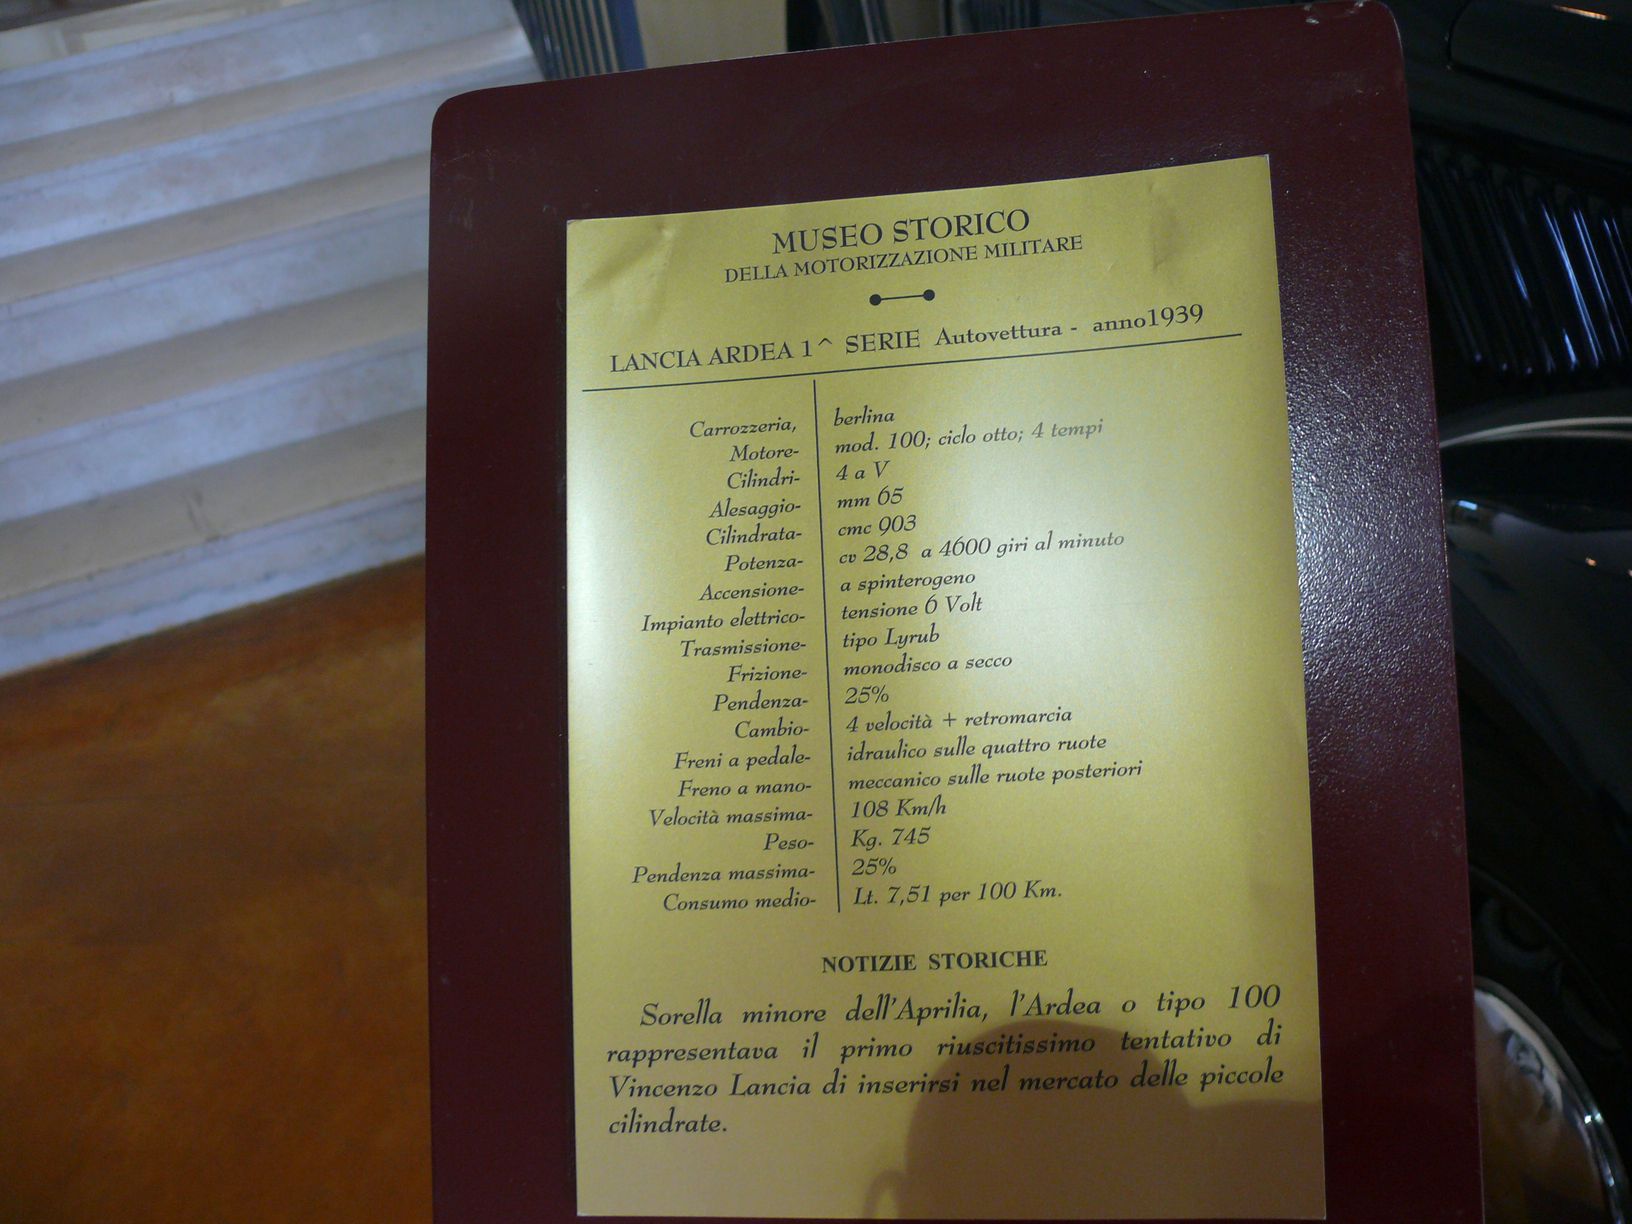 MUSEO STORICO
DELLA MOTORIZZAZIONE MILITARE
LANCIA ARDEA 1^ SERIE Autovettura - anno1939
Carrozzeria, berlina
Motore- mod. 100; ciclo otto; 4 tempi
Cilindri- 4 a V
Alesaggio- mm 65
Cilindrata- cmc 903
Potenza- cv 28,8 a 4600 giri al minuto
Accensione- a spinterogeno
Impianto elettrico- tensione 6 Volt
Trasmissione- tipo Lyrub
Frizione- monodisco a secco
Pendenza- 25%
Cambio- 4 velocità + retromarcia
Freni a pedale- idraulico sulle quattro ruote
Freno a mano- meccanico sulle ruote posteriori
Velocità massima- 108 Km/h
Peso- Kg. 745
Pendenza massima- 25%
Consumo medio- Lt. 7,51 per 100 Km.
NOTIZIE STORICHE
Sorella minore dell'Aprilia, l'Ardea o tipo 100
rappresentava il primo riuscitissimo tentativo di
Vincenzo Lancia di inserirsi nel mercato delle piccole
cilindrate.